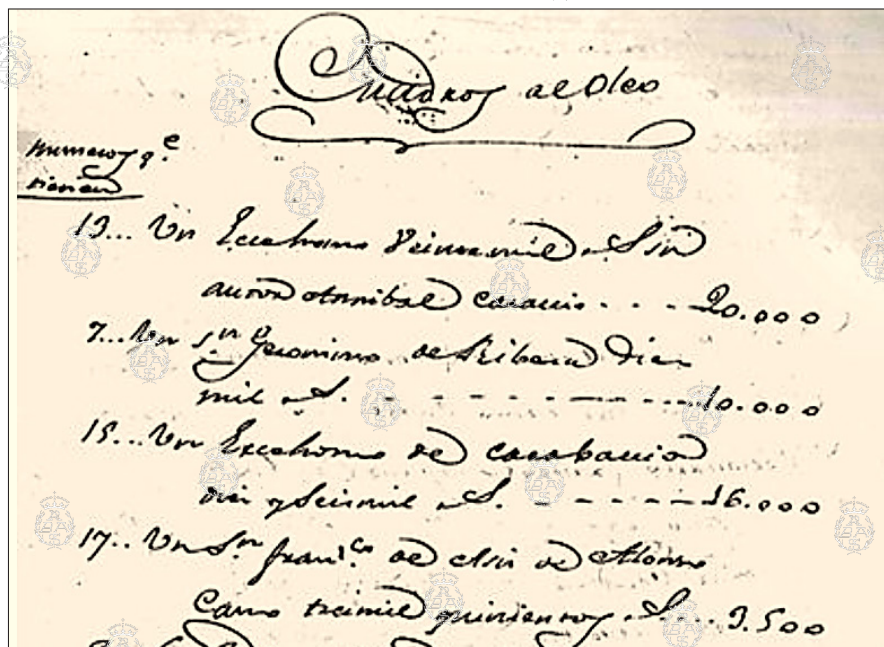 Quadros al Oleo
numeros q.e
tienen
13... Un Eccehomo Veinte mil rs Su
autor Annibal Caracio . . . 20.000
7... Un Sn Geronimo de Ribera Diez
mil rs. - - - - - - - - - - 10.000
15... Un Eccehomo de Carabacio
diez y seis mil rs. - - - - - - 16.000
17.. Un Sn Franco de Asis de Alonso
Cano tres mil quinientos rs... 3.500